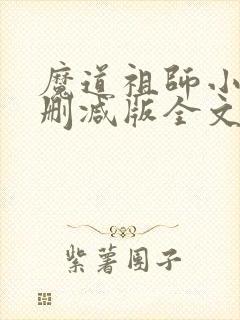 魔道祖师小
删减版全文
紫薯团子